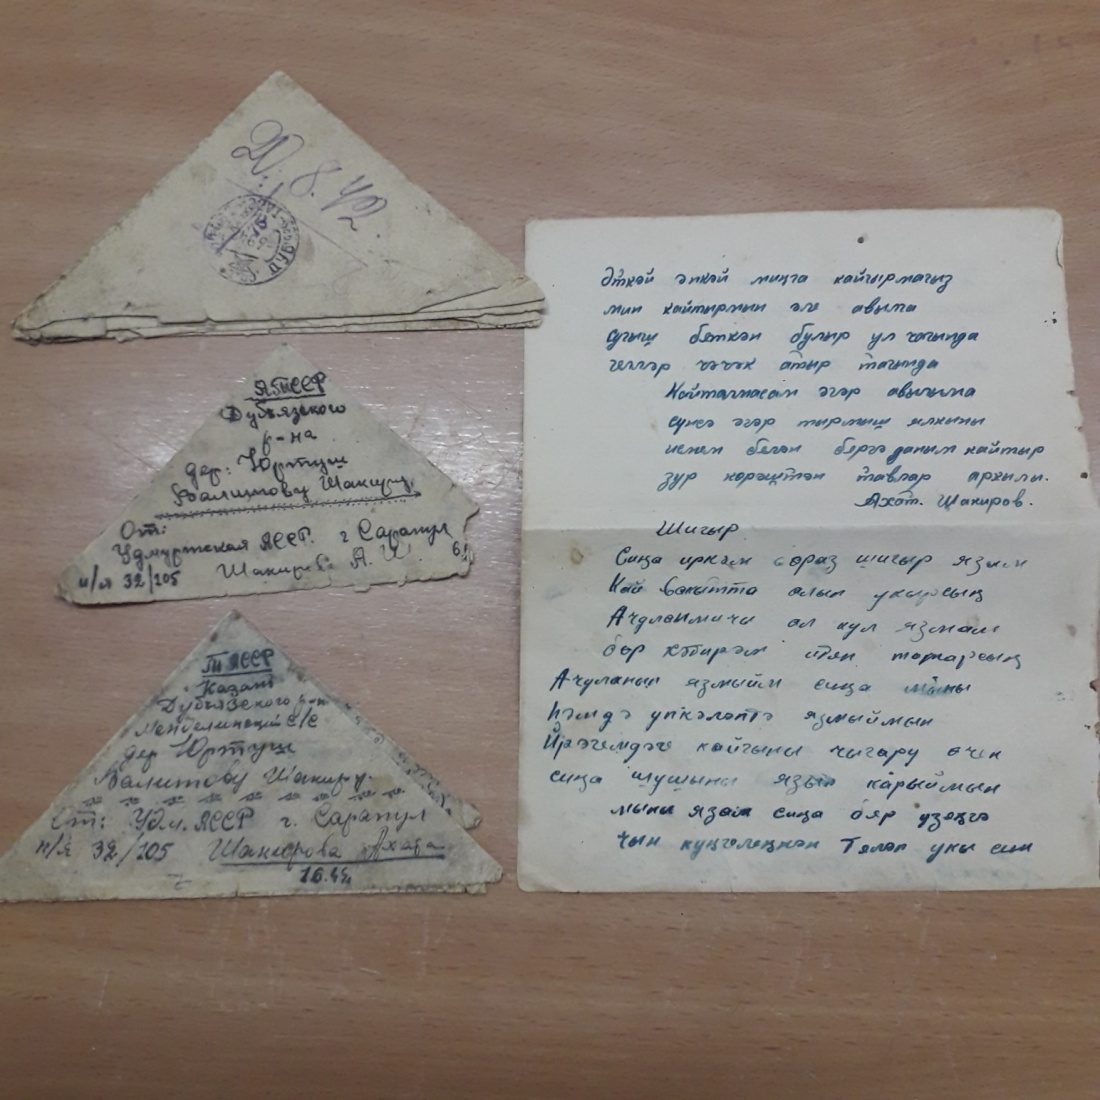 20.8.42
ЯТССР
Дубъязского
р-на
дер: Юртуш
Валитову Шакиру
От:
Удмуртская АССР. г Сарапул
п/я 32/205 Шакирова А. Ш.
ТАССР
Казань
Дубъязского р-он
с/с
дер Юртуш
Валитову Шакиру.
От: Удм. АССР г. Сарапул
п/я 32/205 Шакирова Ахата
Әткәй әнкәй миңга кайгырмагыз
мин кайтырмын әле авылга
сугыш бяткән булыр ул чагында
геллэр чәчәк атыр тагында
Кайталмасам әгәр авылыма
сунсә әгәр тырмыш ялкыны
исмем белән бергә даным кайтыр
зур көрәштән тавлар аркылы.
Ахат. Шакиров.
Шигыр
Сиңа иркәм бераз шигыр язам
Кай вакытта алып укырсың
Ачуланмичи ал кул язмам
бер кәбирәм
Ачуланып язмыйм сиңа мыны
һәмдә упкәләптә язмыймын
Йөрәгемдәге кайгыны чыгару өчен
сиңа шушыны язып карыймын
мыны язам сиңа бяр узеңгә
чын куңгелеңнән Тяләп укы син